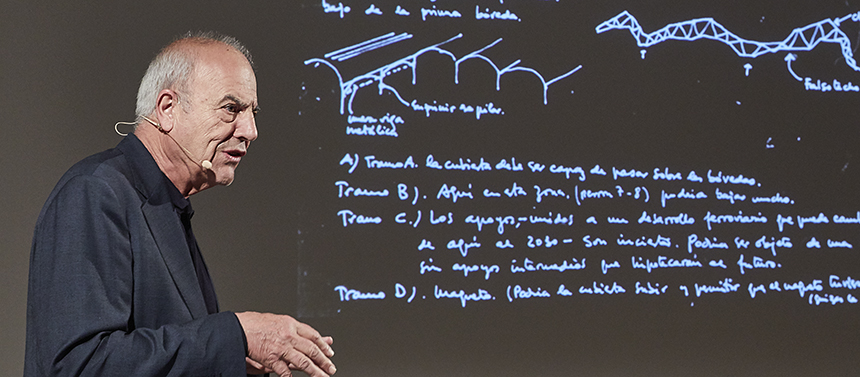 bajo de la primera bóveda.
Suprimir este pilar.
nueva viga
metálica
Falso techo
A) Tramo A. la cubierta debe ser capaz de pasar sobre las bóvedas.
Tramo B). Aquí en esta zona. (perron 7-8) podría bajar mucho.
Tramo C.) Los apoyos,-unidos a un desarrollo ferroviario que puede camb
de aquí al 2030 - Son inciertos. Podría ser objeto de una
sin apoyos intermedios que hipotecarán el futuro.
Tramo D). Maqueta. (Podría la cubierta subir y permitir que el